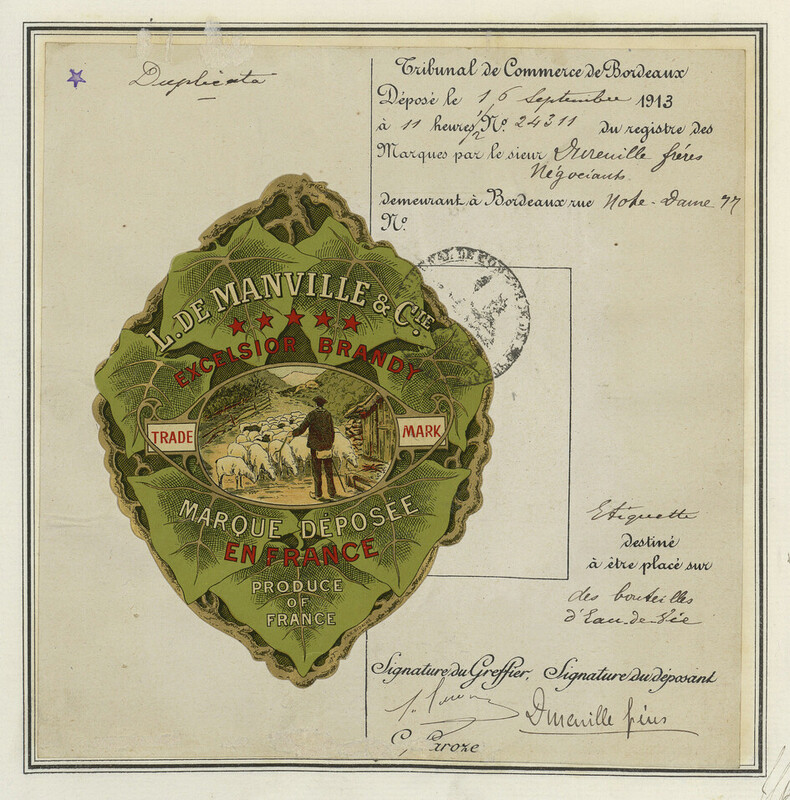 Duplicata
Tribunal de Commerce de Bordeaux
Déposé le 16 Septembre 1913
à 11 heures 1/2 No. 24311 du registre des
Marques par le sieur Dureville frères
Négociants
demeurant à Bordeaux rue Notre-Dame 77
No.
L. DE MANVILLE & CIE
EXCELSIOR BRANDY
TRADE MARK
MARQUE DÉPOSÉE
EN FRANCE
PRODUCE
OF
FRANCE
Etiquette
destiné
à être placé sur
des bouteilles
d'Eau-de-Vie
Signature du Greffier, Signature du déposant
frères